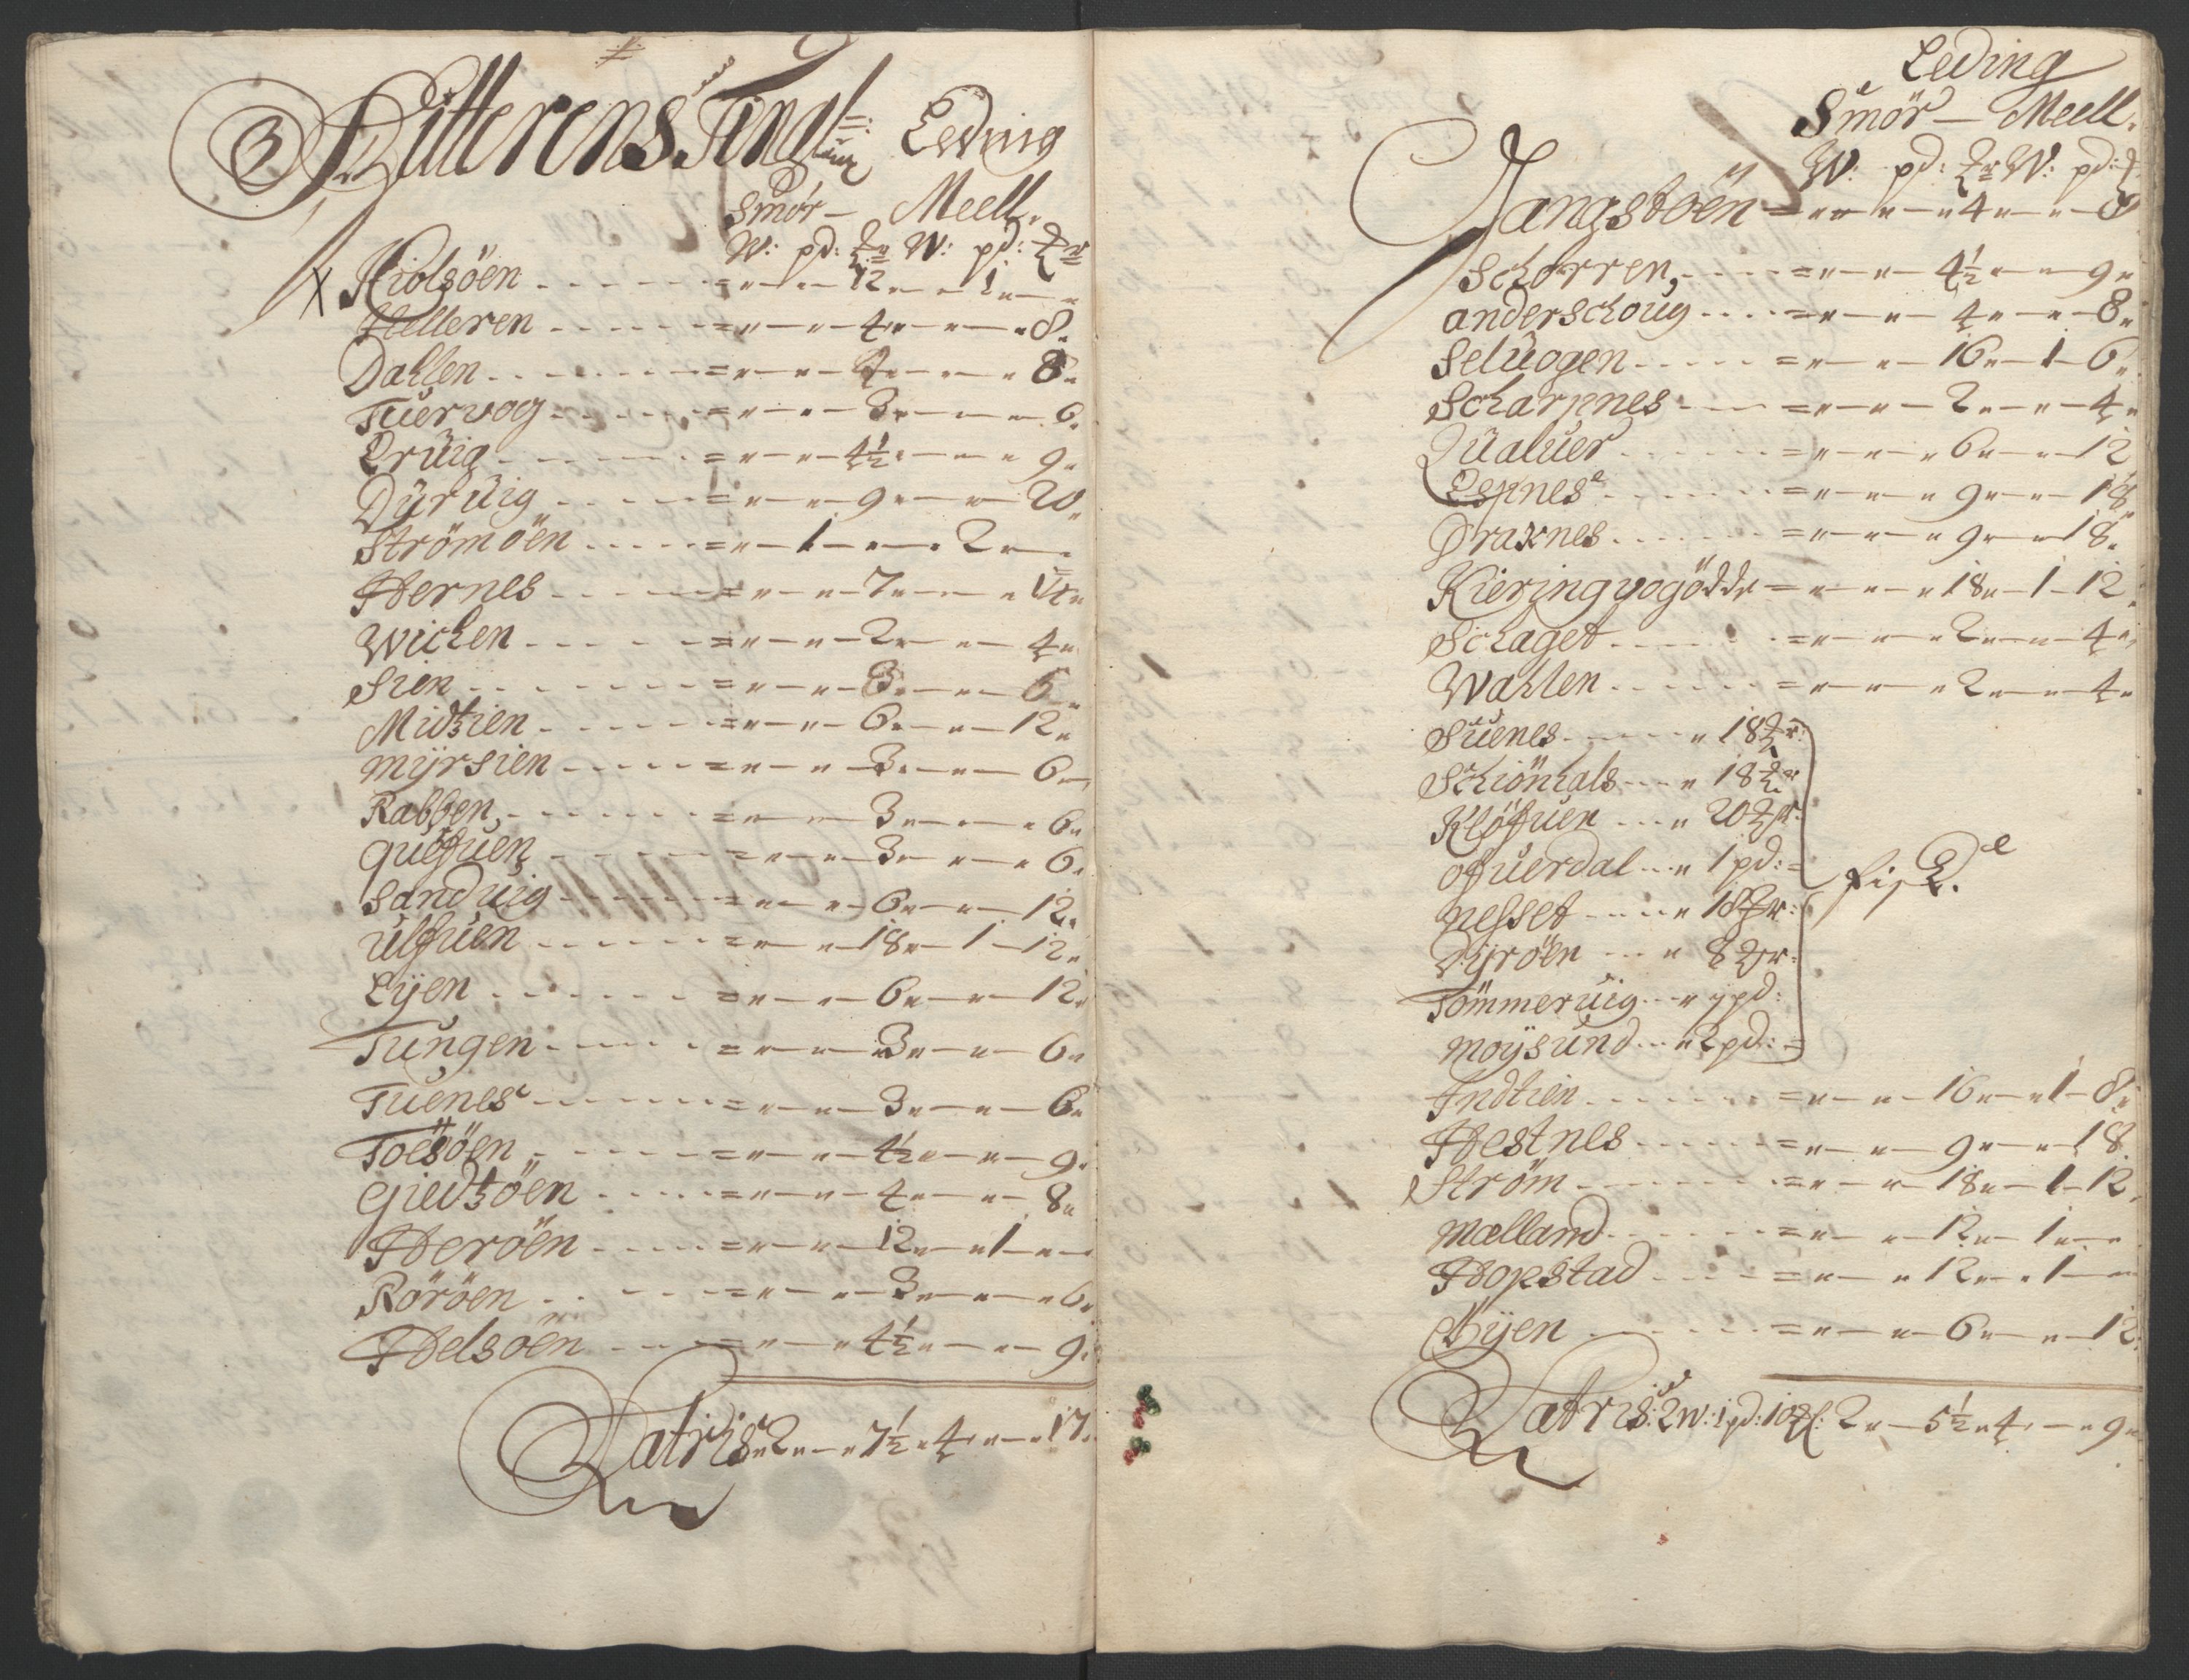 Hitterens Tingl: Leding
Smör — Meell.
W: pd: ℔r W: pd: ℔r
X Kiolsöen - - - - - = „ — „ — 12 „ — „ 1 „ — „
Helleren - - - - - = „ — „ — 4 „ — „ — 8 „
Dahlen - - - - - = „ — „ — 4 „ — „ — 8 „
Tuervog - - - - - = „ — „ — 3 „ — „ — 6 „
Ørüig - - - - - = „ — „ — 4½ „ — „ — 9 „
Dyrüig - - - - - = „ — „ — 9 „ — „ — 20 „
Strömöen - - - - - = „ — 1 — „ — „ 2 „ — „
Hernes - - - - - = „ — „ — 7 „ — „ — 14 „
Wichen - - - - - = „ — „ — 2 „ — „ — 4 „
Sien - - - - - = „ — „ — 3 „ — „ — 6 „
Midtsien - - - - - = „ — „ — 6 „ — „ — 12 „
Myrsien - - - - - = „ — „ — 3 „ — „ — 6 „
Rabben, - - - - - = „ — „ — 3 „ — „ — 6 „
- - - - - = „ — „ — 3 „ — „ — 6 „
Sanduig - - - - - = „ — „ — 6 „ — „ — 12 „
Ulfuen - - - - - = „ — „ — 18 „ — 1 — 12 „
Eyen - - - - - = „ — „ — 6 „ — „ — 12 „
Tungen - - - - - = „ — „ — 3 „ — „ — 6 „
Tuenes - - - - - = „ — „ — 3 „ — „ — 6 „
- - - - - = „ — „ — 4½ „ — „ — 9 „
Giedtsöen - - - - - = „ — „ — 4 „ — „ — 8 „
Heröen - - - - - = „ — „ — 12 „ — „ 1 „ — „
Röröen - - - - - = „ — „ — 3 „ — „ — 6 „
Helsöen - - - - - = „ — „ — 4½ „ — „ — 9 „
Latris „ 2 „ — „ 7½ „ 4 „ — „ 17 „
Leding
Smör — Meell.
W: pd: ℔r W: pd: ℔
Jangstöen = „ — „ — 4 „ — „ — 8
Schorren, - - - - = „ — „ — 4½ „ — „ — 9 „
Anderschoug - - - - = „ — „ — 4 „ — „ — 8 „
Seluogen - - - - = „ — „ — 16 „ — 1 — 6 „
Scharpnes - - - - = „ — „ — 2 „ — „ — 4 „
Qüaluer - - - - = „ — „ — 6 „ — „ — 12
Espnes - - - - = „ — „ — 9 „ — „ — 18 „
Draxnes - - - - = „ — „ — 9 „ — „ — 18 „
Kieringvogödde = „ — „ — 18 „ — 1 — 12 „
Schaget - - - - = „ — „ — 2 „ — „ — 4 „
Wahlen - - - - = „ — „ — 2 „ — „ — 4 „
Suenes - - - - „ 18 ℔r:
Schiönhals - - - „ 18 ℔r
Klöfuen - - - „ 20 ℔r:
Ofuerdal - - „ 1 pd: =
Nesset - - - - „ 18 ℔r:
Dyröen - - - „ 8 ℔r:
Tömmeruig - - „ 1 pd:
Moysund - - „ 2 pd: =
fisk.
Indtien - - - - = „ — „ — 16 „ — „ 1 — 8 „
Hestnes - - - - = „ — „ — 9 „ — „ — 18
Ström - - - - = „ — „ — 18 „ — 1 — 12 „
Mælland - - - - = „ — „ — 12 „ — 1 „ — „
Hopstad - - - - = „ — „ — 12 „ — „ 1 — „
Byen - - - - = „ — „ — 6 „ — „ — 12
Latris: 2 W: 1 pd: 10 ℔: 2 „ — 5½ „ 4 „ — „ 9 „